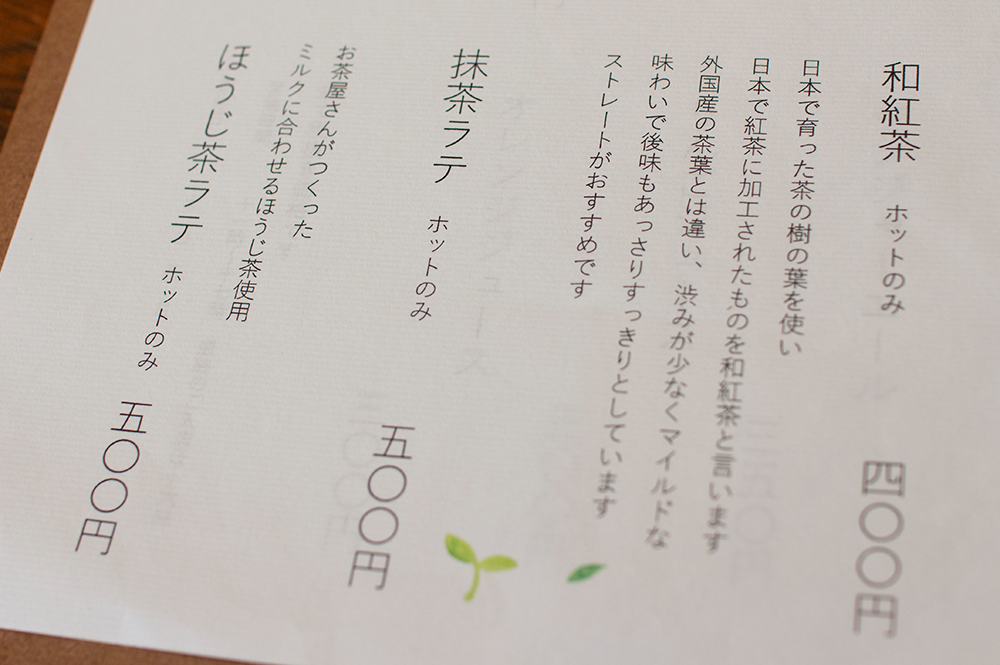 和紅茶 ホットのみ 四〇〇円
日本で育った茶の樹の葉を使い
日本で紅茶に加工されたものを和紅茶と言います
外国産の茶葉とは違い、渋みが少なくマイルドな
味わいで後味もあっさりすっきりとしています
ストレートがおすすめです
抹茶ラテ ホットのみ 五〇〇円
お茶屋さんがつくった
ミルクに合わせるほうじ茶使用
ほうじ茶ラテ ホットのみ 五〇〇円